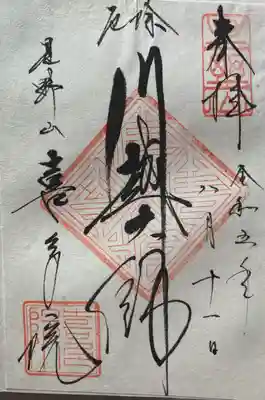 奉拝
令和五年
八月十一日
厄除
川越大師
星野山
喜多院